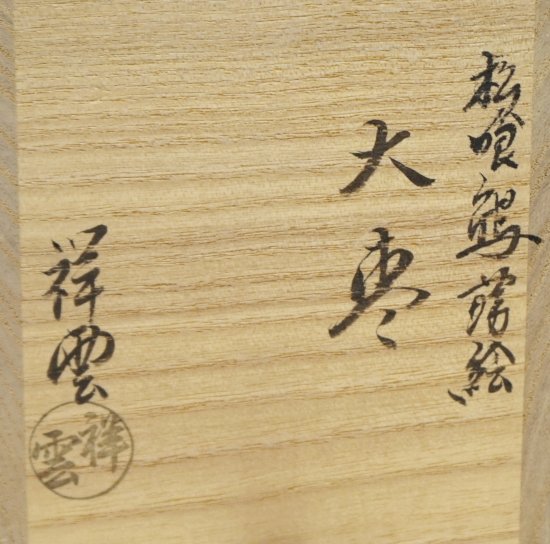 松喰鶴蒔絵
大棗
祥雲
祥雲